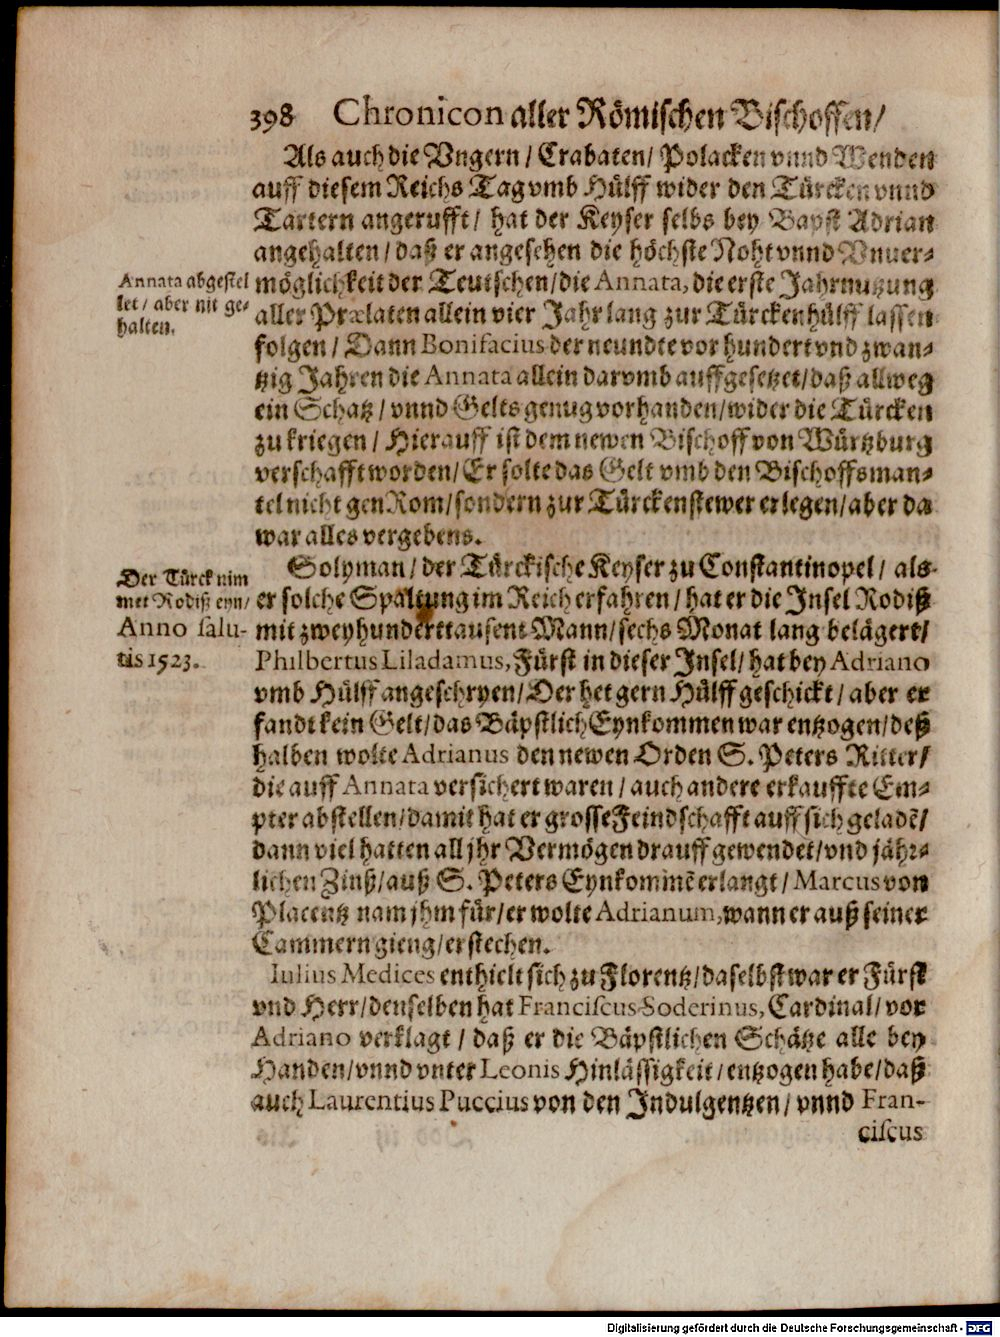 398 Chronicon aller Römischen Bischoffen/
Als auch die Vngern/ Crabaten/ Polacken vnnd Wenden
auff diesem Reichs Tag vmb Hülff wider den Türcken vnnd
Tartern angerufft/ hat der Keyser selbs bey Bapst Adrian
angehalten/ daß er angesehen die höchste Noht vnnd Vnuer-
möglichkeit der Teutschen/ die Annata, die erste Jahrnutzung
aller Prælaten allein vier Jahr lang zur Türckenhülff lassen
folgen/ Dann Bonifacius der neundte vor hundert vnd zwan-
tzig Jahren die Annata allein darvmb auffgesetzet/ daß allweg
ein Schatz/ vnnd Gelts genug vorhanden/ wider die Türcken
zu kriegen/ Hierauff ist dem newen Bischoff von Würtzburg
verschafft worden/ Er solte das Gelt vmb den Bischoffsman-
tel nicht gen Rom/ sondern zur Türckenstewer erlegen/ aber da
war alles vergebens.
Annata abgestel
let/ aber nit ge-
halten.
Solyman/ der Türckische Keyser zu Constantinopel/ als
er solche Spaltung im Reich erfahren/ hat er die Insel Rodiß
mit zweyhunderttausent Mann/ sechs Monat lang belägert/
Philbertus Liladamus, Fürst in dieser Insel/ hat bey Adriano
vmb Hülff angeschryen/ Der het gern Hülff geschickt/ aber er
fandt kein Gelt/ das Bäpstlich Eynkommen war entzogen/ deß
halben wolte Adrianus den newen Orden S. Peters Ritter/
die auff Annata versichert waren/ auch andere erkauffte Em-
pter abstellen/ damit hat er grosse Feindschafft auff sich geladẽ/
dann viel hatten all jhr Vermögen drauff gewendet/ vnd jähr-
lichen Zinß/ auß S. Peters Eynkommẽ erlangt/ Marcus von
Placentz nam jhm für/ er wolte Adrianum, wann er auß seiner
Cammern gieng/ erstechen.
Der Türck nim
met Rodiß eyn/
Anno salu-
tis 1523.
Iulius Medices enthielt sich zu Florentz/ daselbst war er Fürst
vnd Herr/ denselben hat Franciscus Soderinus, Cardinal/ vor
Adriano verklagt/ daß er die Bäpstlichen Schätze alle bey
Handen/ vnnd vnter Leonis Hinlässigkeit/ entzogen habe/ daß
auch Laurentius Puccius von den Indulgentzen/ vnnd Fran-
ciscus
Digitalisierung gefördert durch die Deutsche Forschungsgemeinschaft - DFG